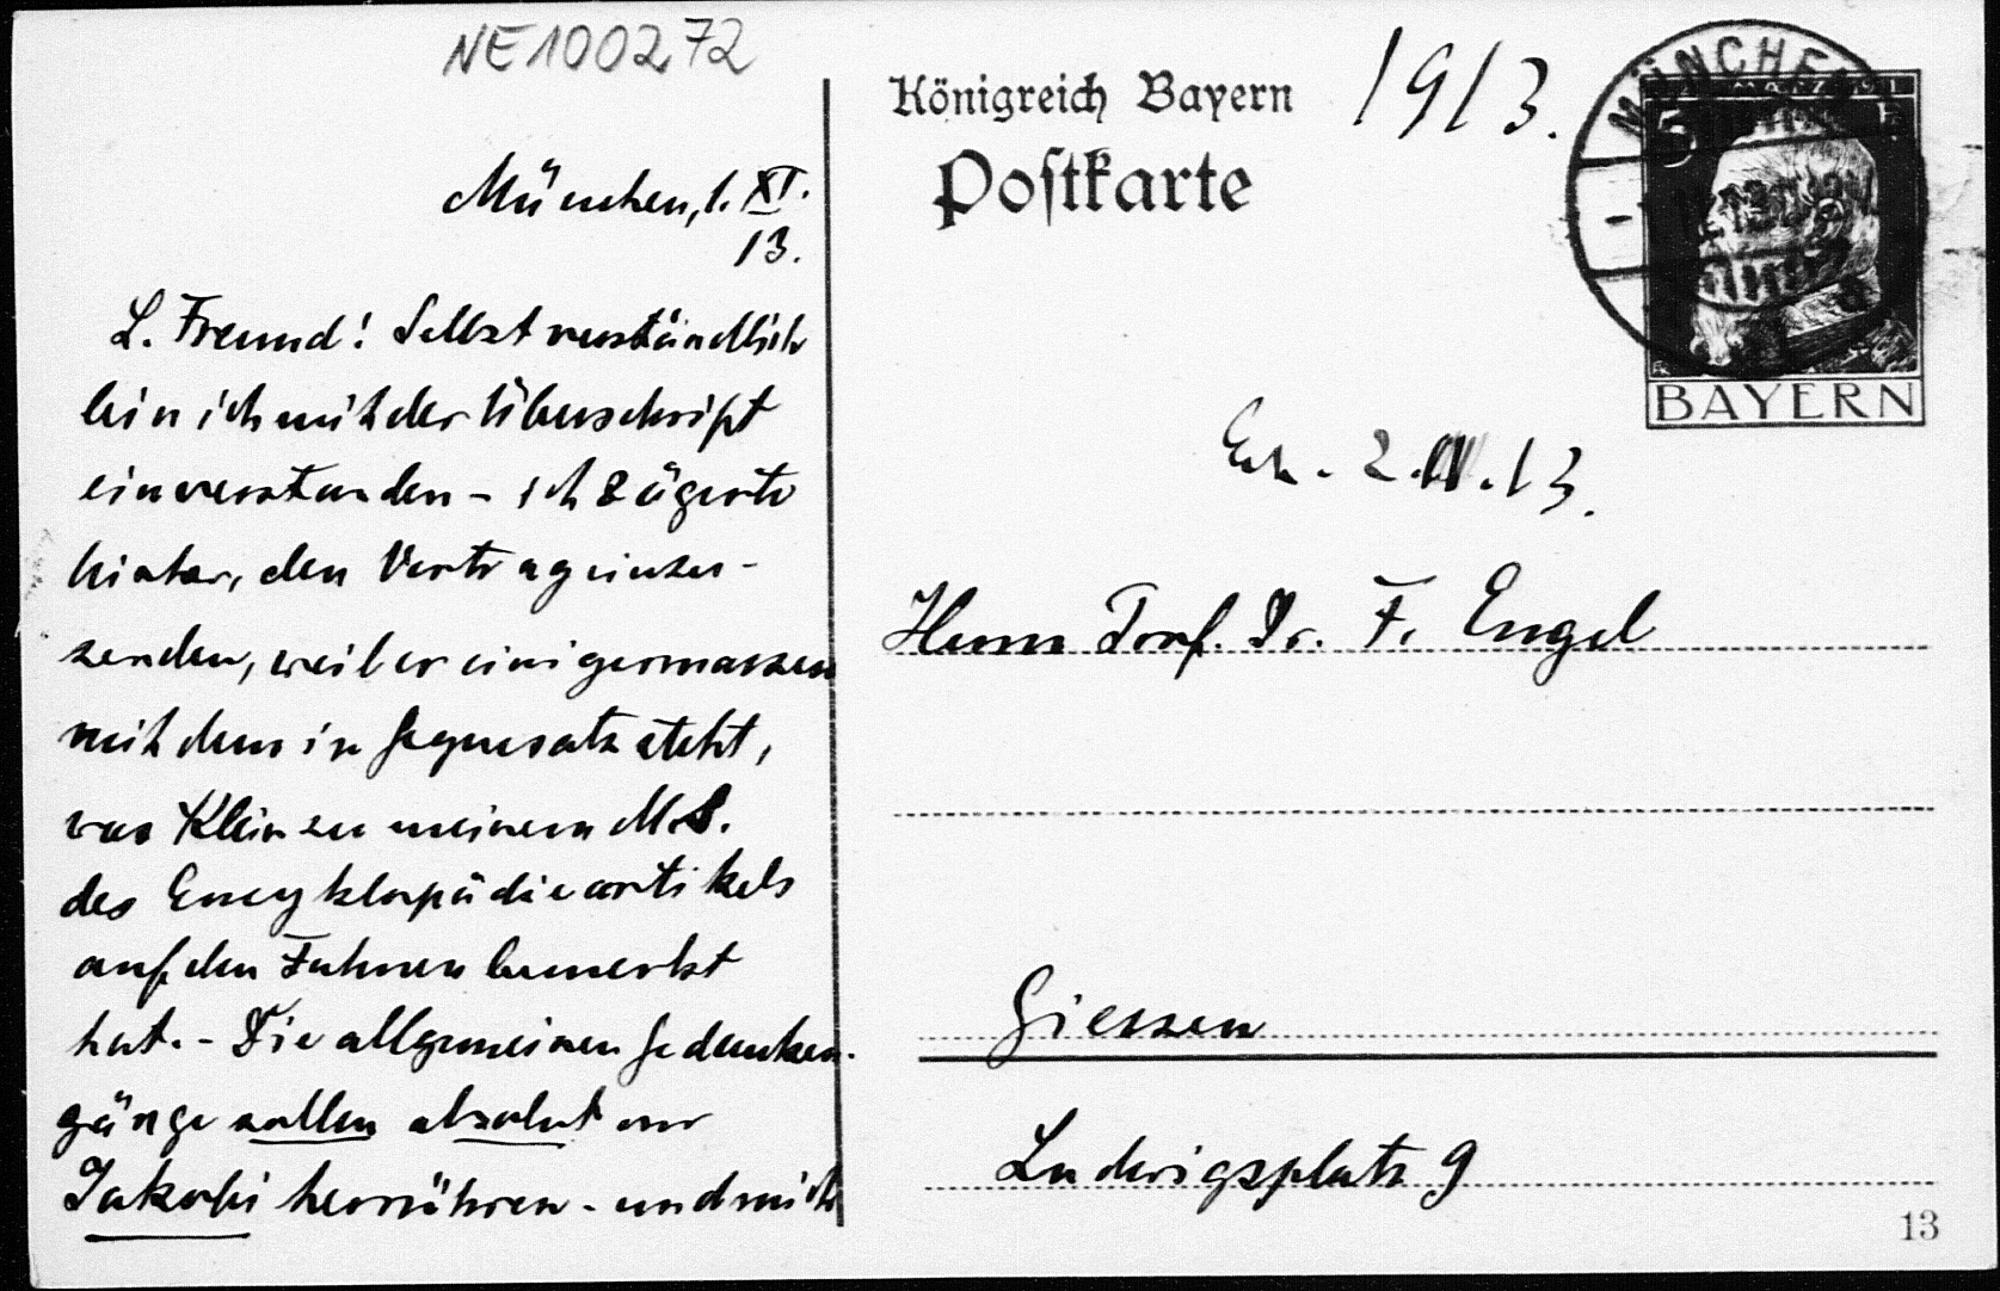 NE100272
München, 1. XI.
13.
L. Freund! Selbstverständlich
bin ich mit der Überschrift
einverstanden - ich zögerte
bisher, den Vertrag einzu-
senden, weil er einigermassen
mit dem in Gegensatz steht,
was Klein zu meinem M.S.
des Encyklopädieartikels
auf den Fahnen bemerkt
hat. - Die allgemeinen Gedanken-
gänge sollen absolut von
Jakobi herrühren - und nicht
Königreich Bayern
1913.
Postkarte
MÜNCHEN
5
BAYERN
13.
Herrn Prof. Dr. F. Engel
Giessen
Ludwigsplatz 9
13